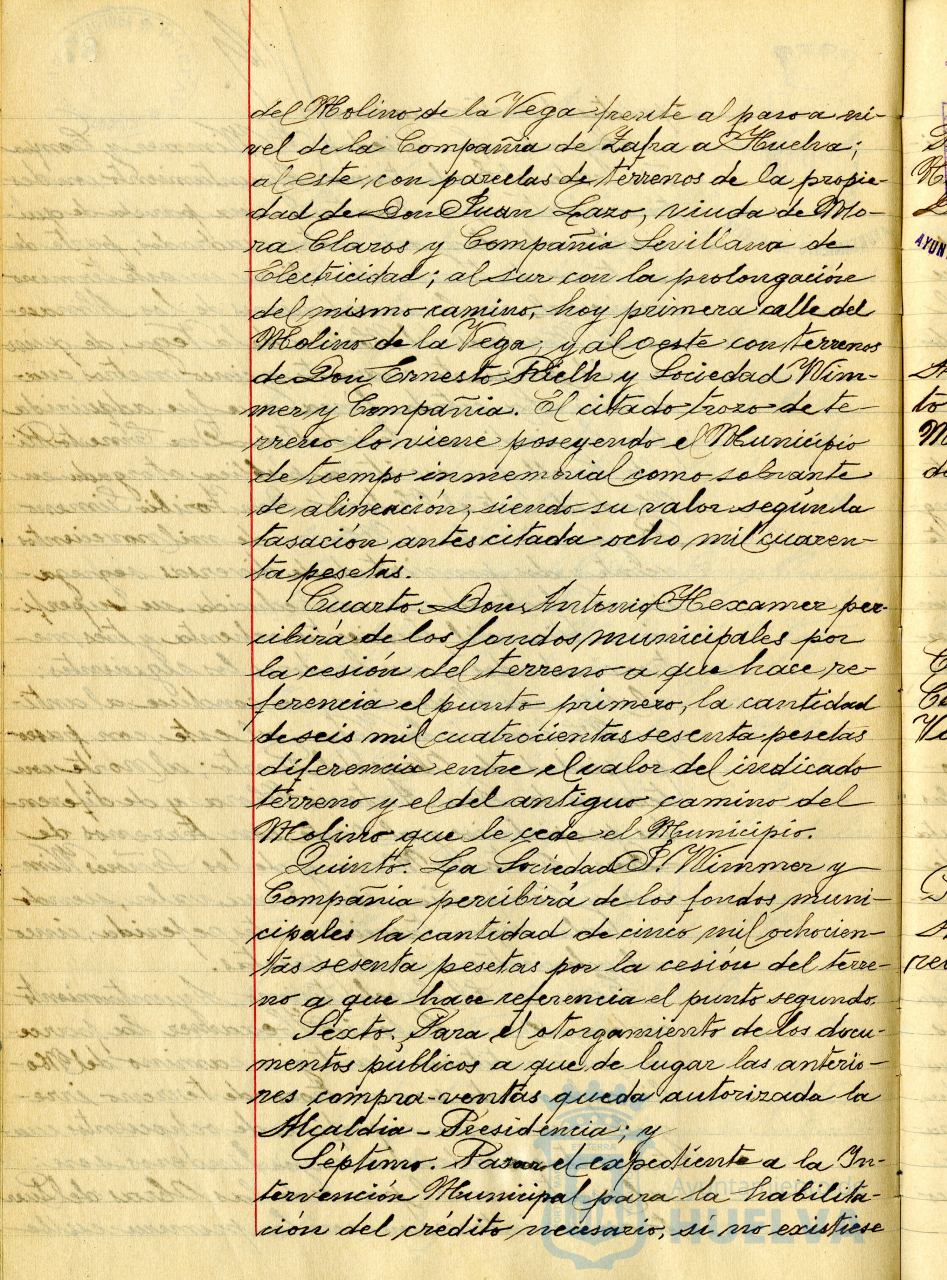 del Molino de la Vega frente al paso a ni-
vel de la Compañia de Zafra a Huelva;
al este, con parcelas de terrenos de la propie-
dad de Don Juan Lazo, viuda de Mo-
ra Claros y Compañia Sevillana de
Electricidad; al sur con la prolongación
del mismo camino, hoy primera calle del
Molino de la Vega, y al oeste con terrenos
de Don Ernesto y Sociedad Wim-
mer y Compañia. El citado trozo de te-
rreno lo viene poseyendo el Municipio
de tiempo inmemrial como sobrante
de alineación, siendo su valor según la
tasación antes citada ocho mil cuaren-
ta pesetas.
Cuarto. Don Antonio Hexamer per-
cibirá de los fondos municipales por
la cesión del terreno a que hace re-
ferencia el punto primero, la cantidad
de seis mil cuatrocientas sesenta pesetas
diferencia entre el valor del indicado
terreno y el del antiguo camino del
Molino que le cede el Municipio.
Quinto. La Sociedad P. Wimmer y
Compañia percibirá de los fondos muni-
cipales la cantidad de cinco mil ochocien-
tas sesenta pesetas por la cesión del terre-
no a que hace referencia el punto segundo.
Sexto. Para el otorgamiento de los docu-
mentos públicos a que de lugar las anterio-
res compra-ventas queda autorizada la
Alcaldia-Presidencia; y
Séptimo. Pasar el expediente a la In-
tervención Municipal para la habilita-
ción del crédito necesario, si no existiese
Ayuntamiento de
HUELVA